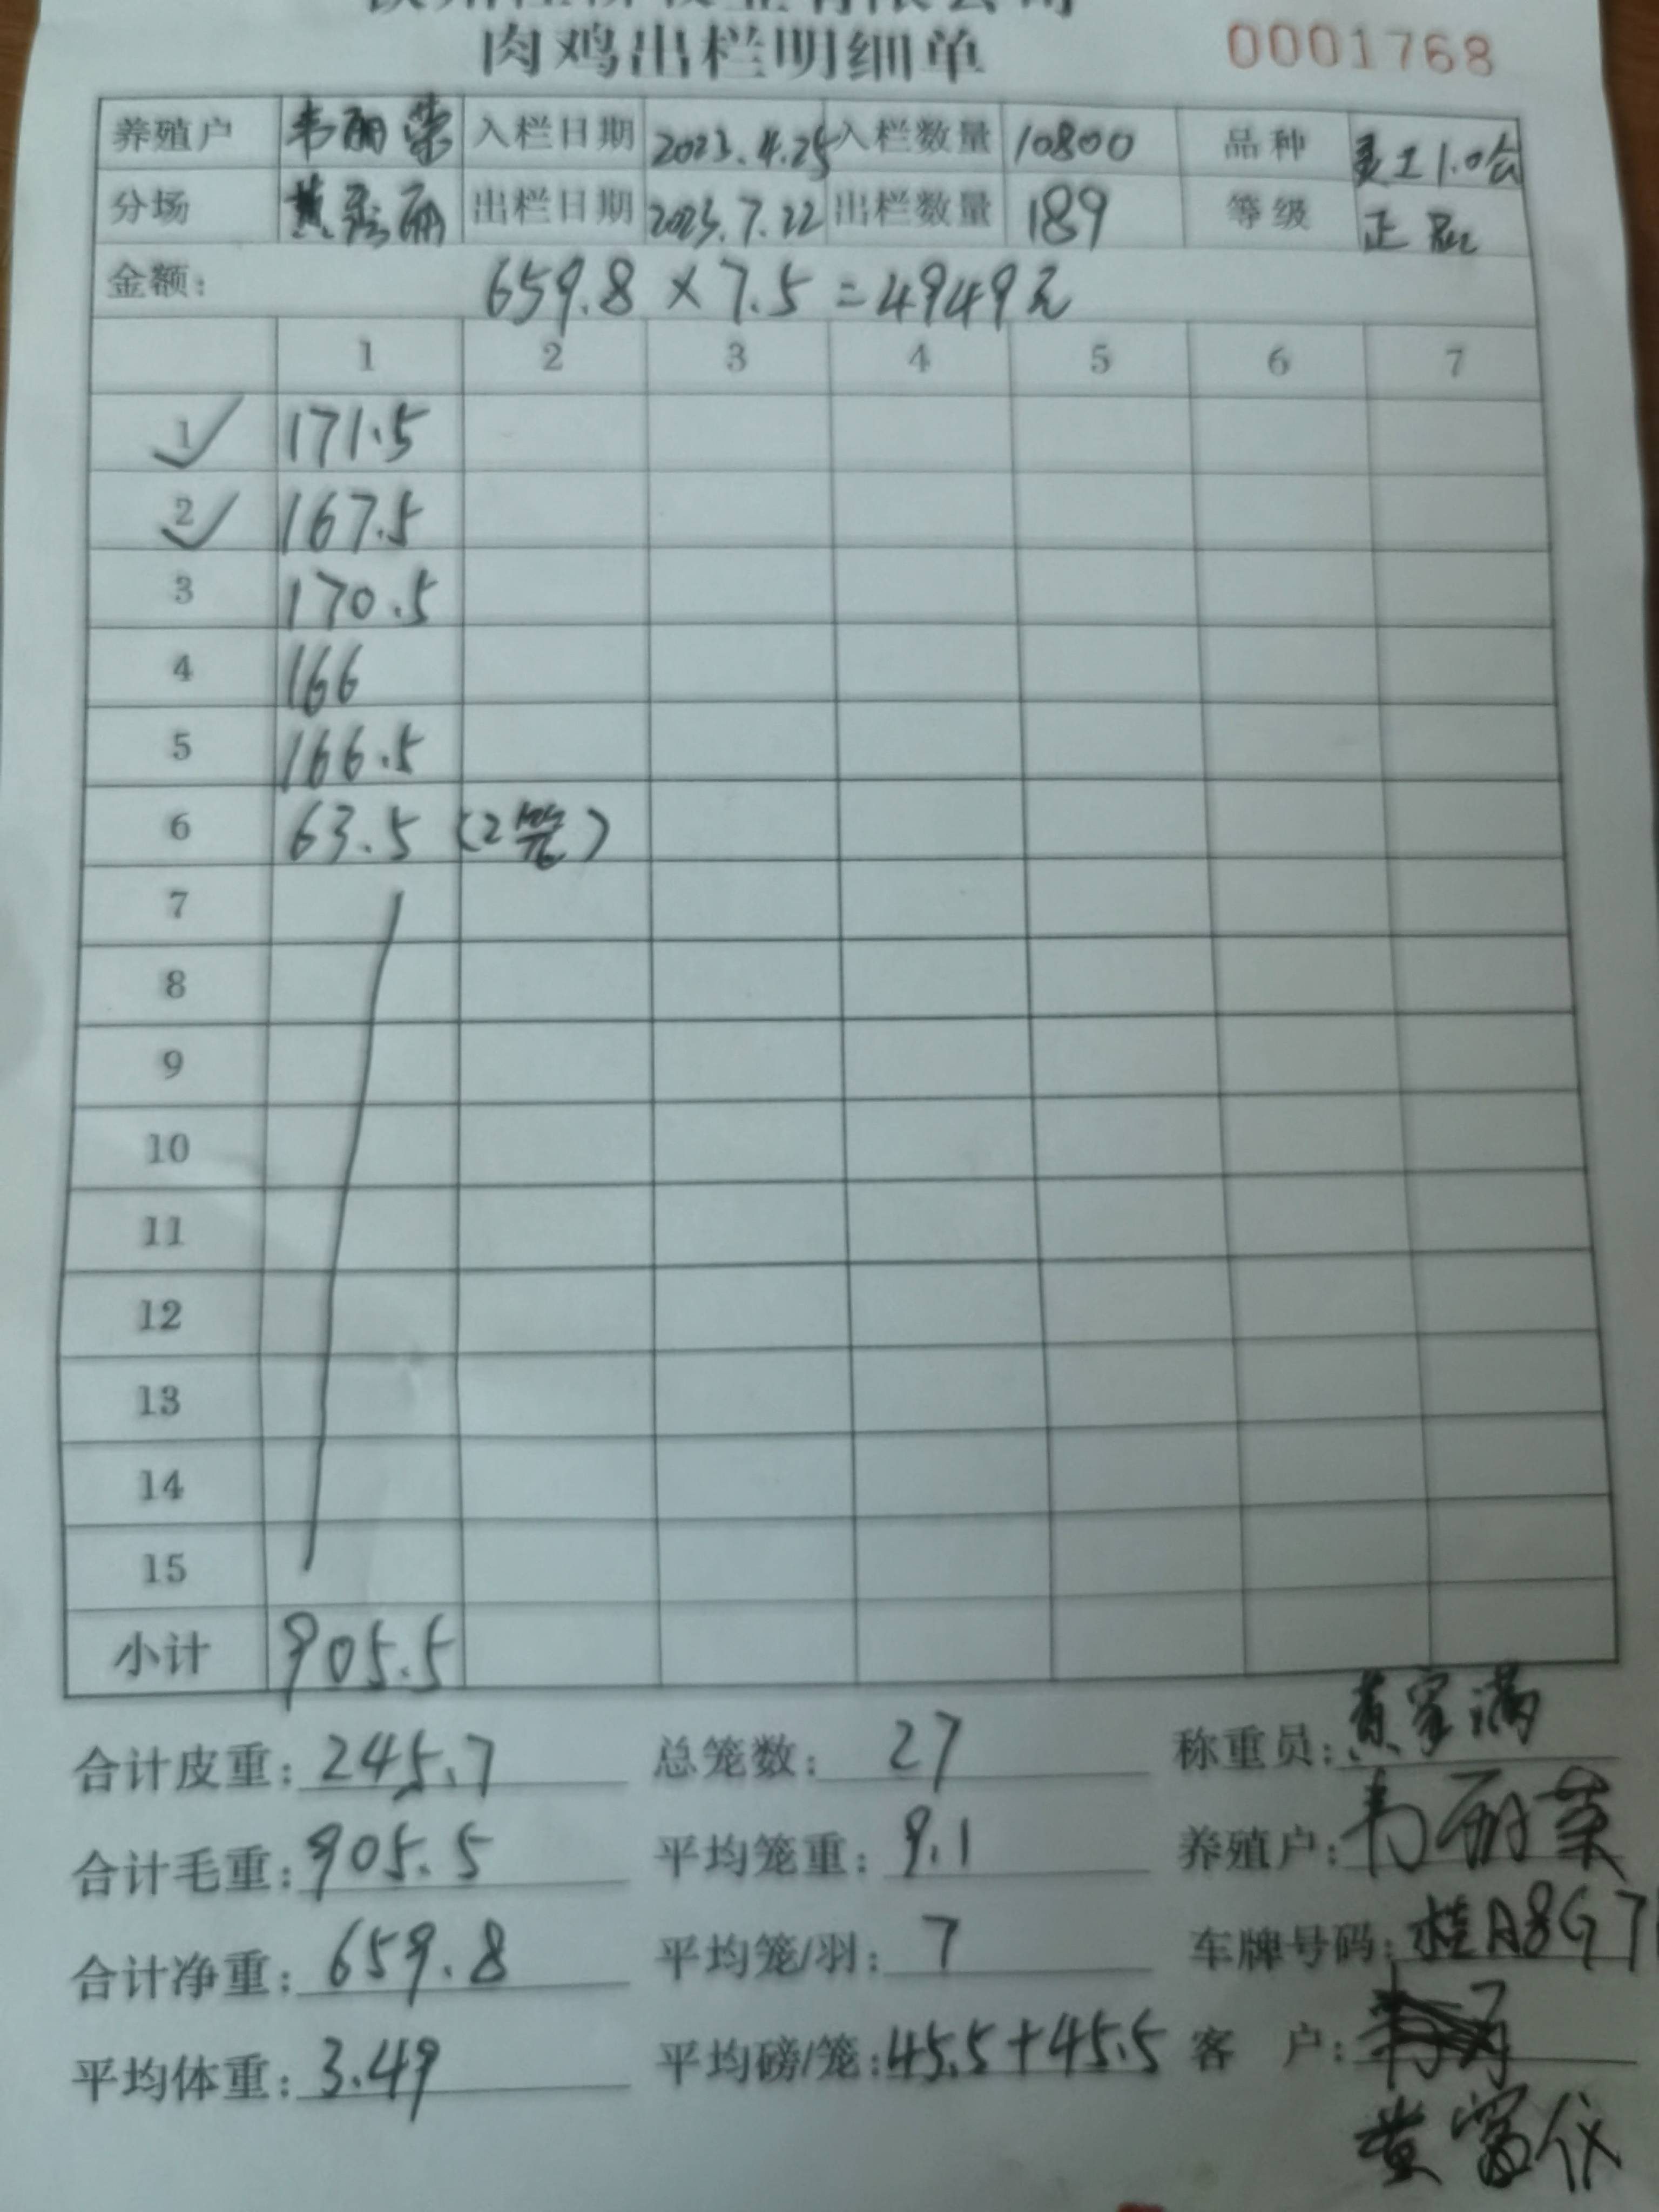 肉鸡出栏明细单 0001768
养殖户 韦丽荣 入栏日期 2023.4.25 入栏数量 10800 品种 灵土1.0公
分场 黄秀丽 出栏日期 2023.7.22 出栏数量 189 等级 正品
金额: 659.8 × 7.5 = 4949元
1 2 3 4 5 6 7
1 171.5
2 167.5
3 170.5
4 166
5 166.5
6 63.5 (2笼)
7
8
9
10
11
12
13
14
15
小计 905.5
合计皮重: 245.7 总笼数: 27 称重员: 黄家满
合计毛重: 905.5 平均笼重: 9.1 养殖户: 韦丽荣
合计净重: 659.8 平均笼/羽: 7 车牌号码: 桂A8G7
平均体重: 3.49 平均磅/笼: 45.5+45.5 客 户:
黄富仪